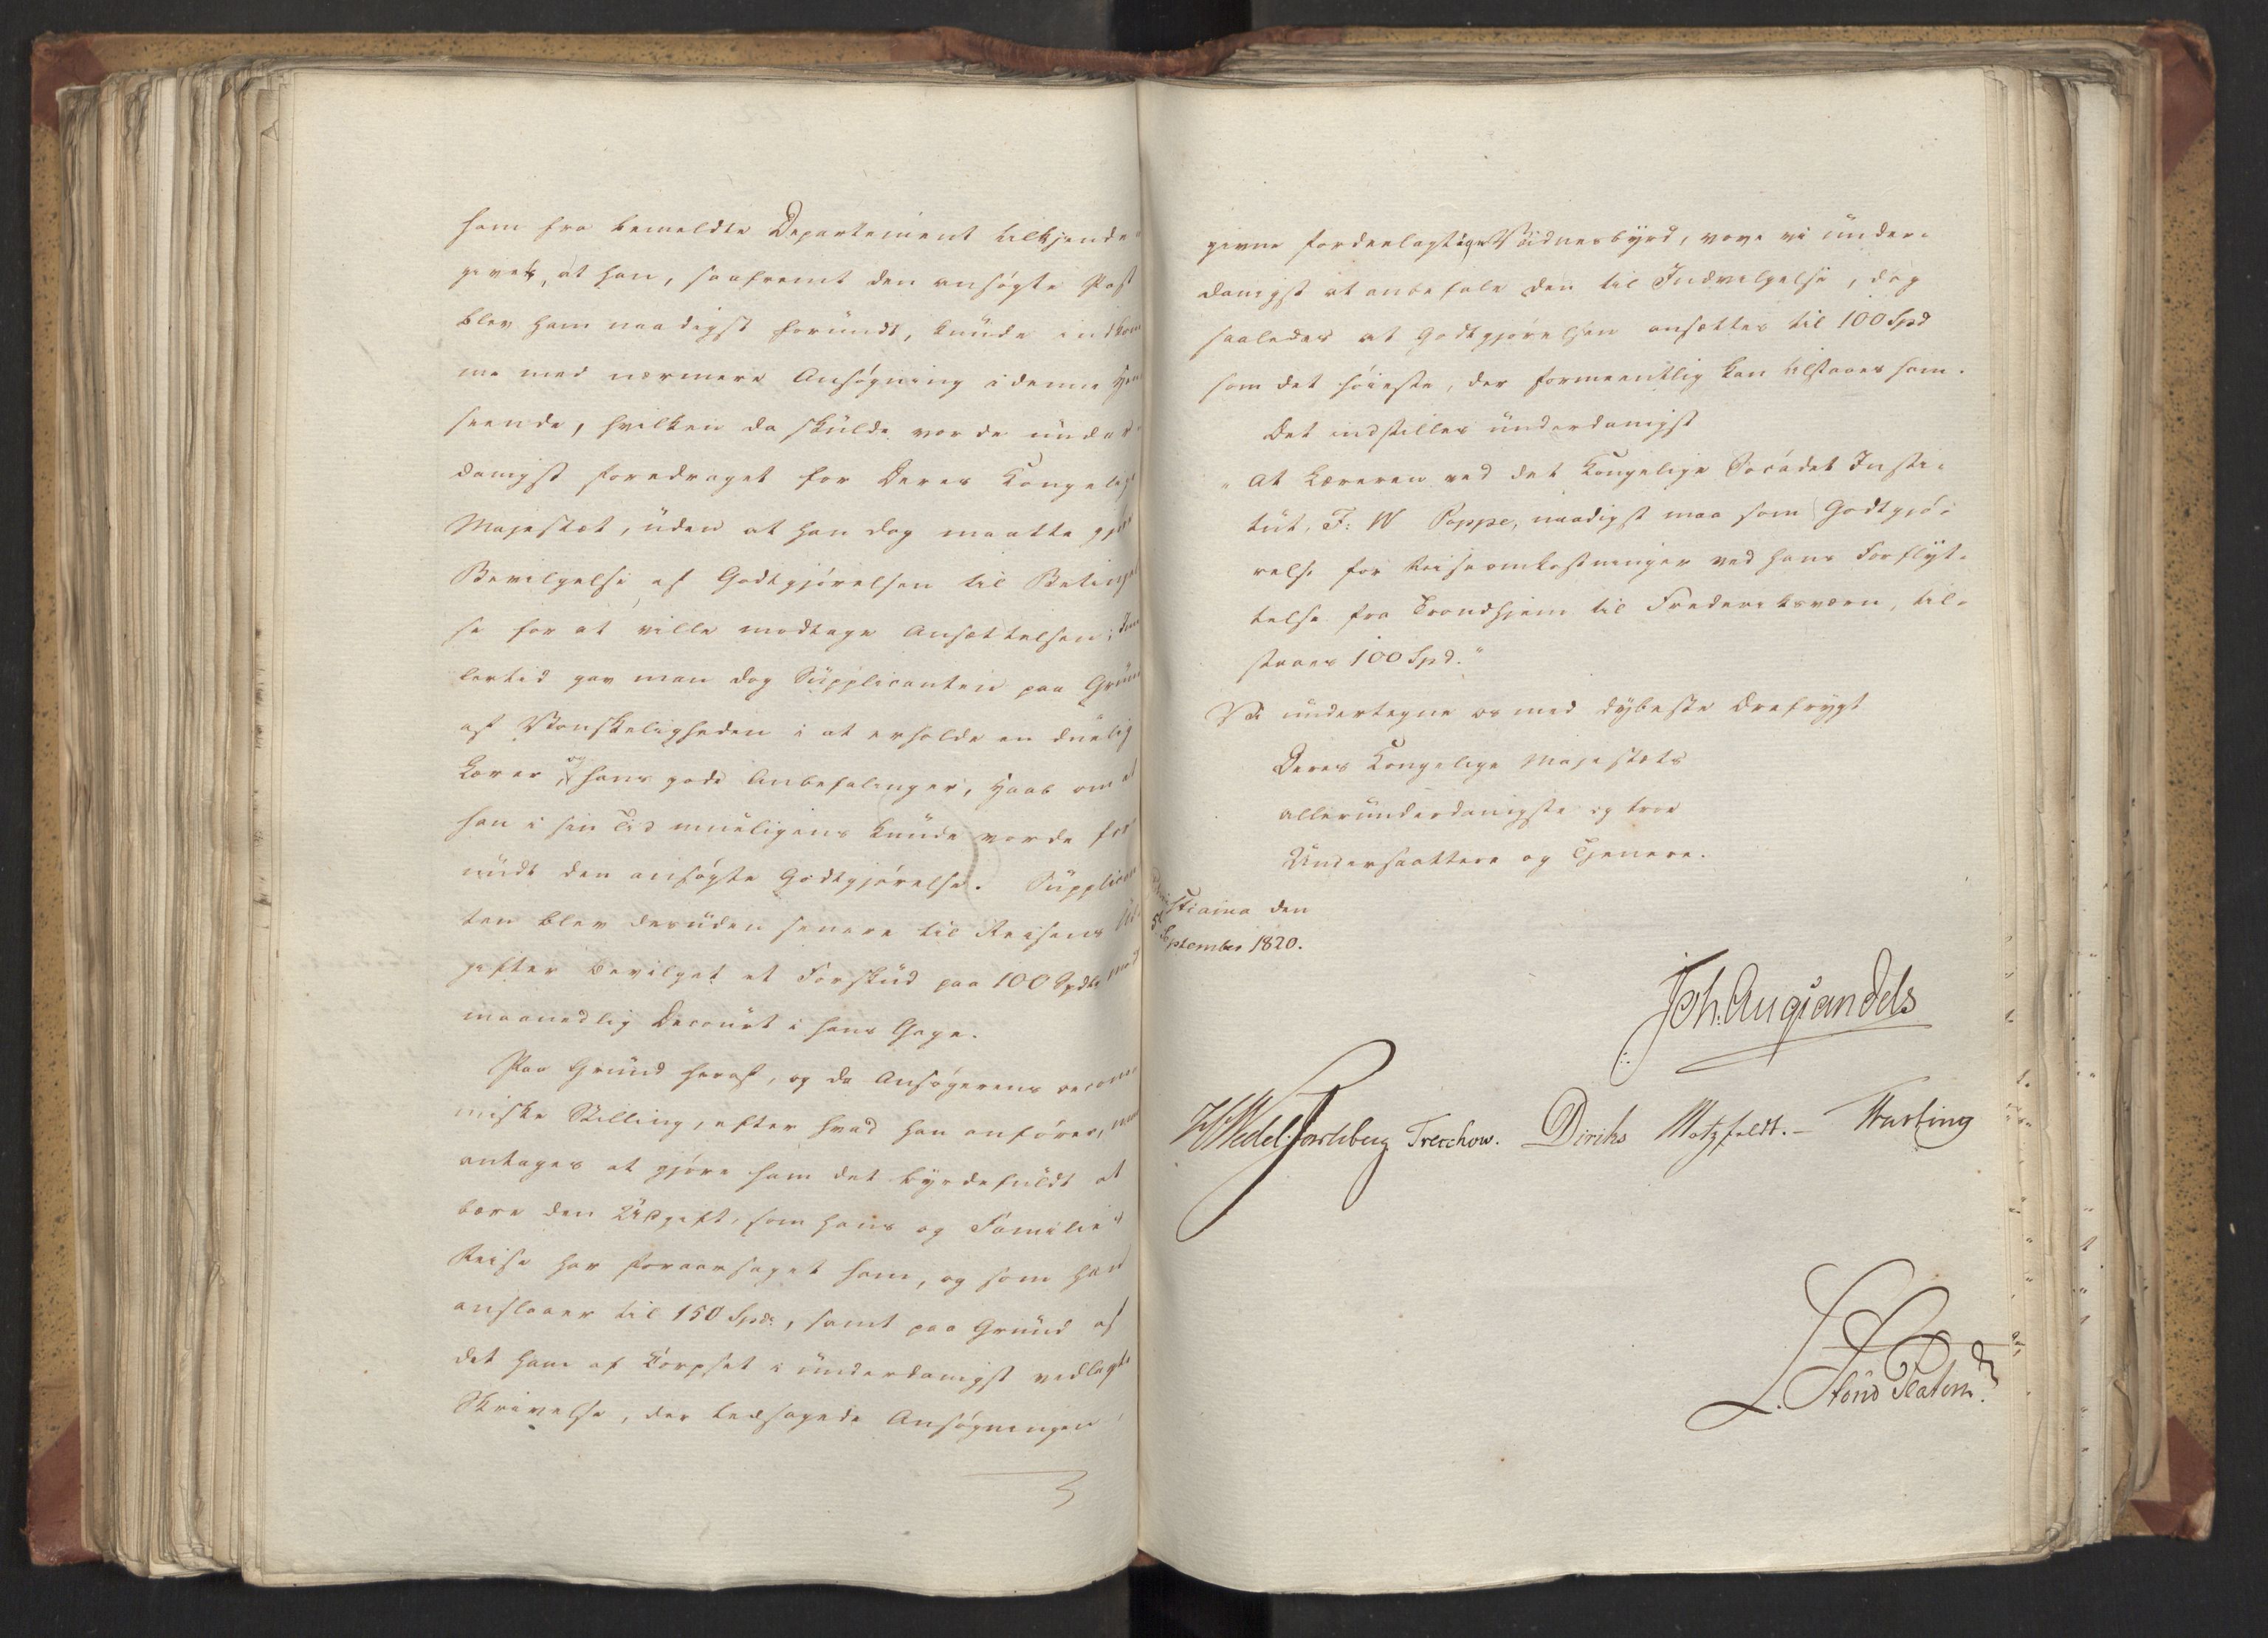 ham fra bemeldte Departement tilkjende-
givet, at han, saafremt den ansøgte Post
blev ham naadigst forundt, kunde indkom
me med nærmere Ansøgning i denne Hen
seende, hvilken da skulde vorde under-
danigst foredraget for Deres Kongelige
Majestæt, uden at han dog maatte gjøre
Bevilgelse af Godtgjørelsen til Betingel
se for at ville modtage Ansættelsen; Imid
lertid gav man dog Supplicanten paa Grund
af Vanskeligheden i at erholde en duelig
Lærer og hans gode Anbefalinger, Haab om at
han i sin Tid mueligens kunde vorde for
undt den ansøgte Godtgjørelse. Supplican
ten blev desuden senere til Reisens Ud-
gifter bevilget et Forskud paa 100 Spdlr mod
maanedlig Decourt i hans Gage.
Paa Grund heraf, og da Ansøgerens oecono-
miske Stilling, efter hvad han anfører, maa
antages at gjøre ham det byrdefuldt at
bære den Udgift, som hans og Families
Reise har foraarsaget ham, og som han
anslaaer til 150 Spd:, samt paa Grund af
det ham af Corpset i underdanigst vedlagte
Skrivelse, der ledsagede Ansøgningen,
givne fordeelagtige Vidnesbyrd, vove vi under-
danigst at anbefale den til Indvilgelse, dog
saaledes at Godtgjørelsen ansættes til 100 Spd
som det høieste, der formeentlig kan tilstaaes ham.
Det indstilles underdanigst
"At Læreren ved det Kongelige Søcadet Insti-
tut, F: W Poppe, naadigst maa som Godtgjø-
relse for Reiseomkostninger ved hans Forflyt-
telse fra Trondhjem til Frederiksværn, til-
staaes 100 Spd."
Vi undertegne os med dybeste Ærefrygt
Deres Kongelige Majestæts
allerunderdanigste og troe
Undersaattere og Tjenere.
Christiania den
5t September 1820.
Joh. Aug: Sandels
HWedel Jarlsberg Treschow. Diriks Motzfeldt.- Fasting